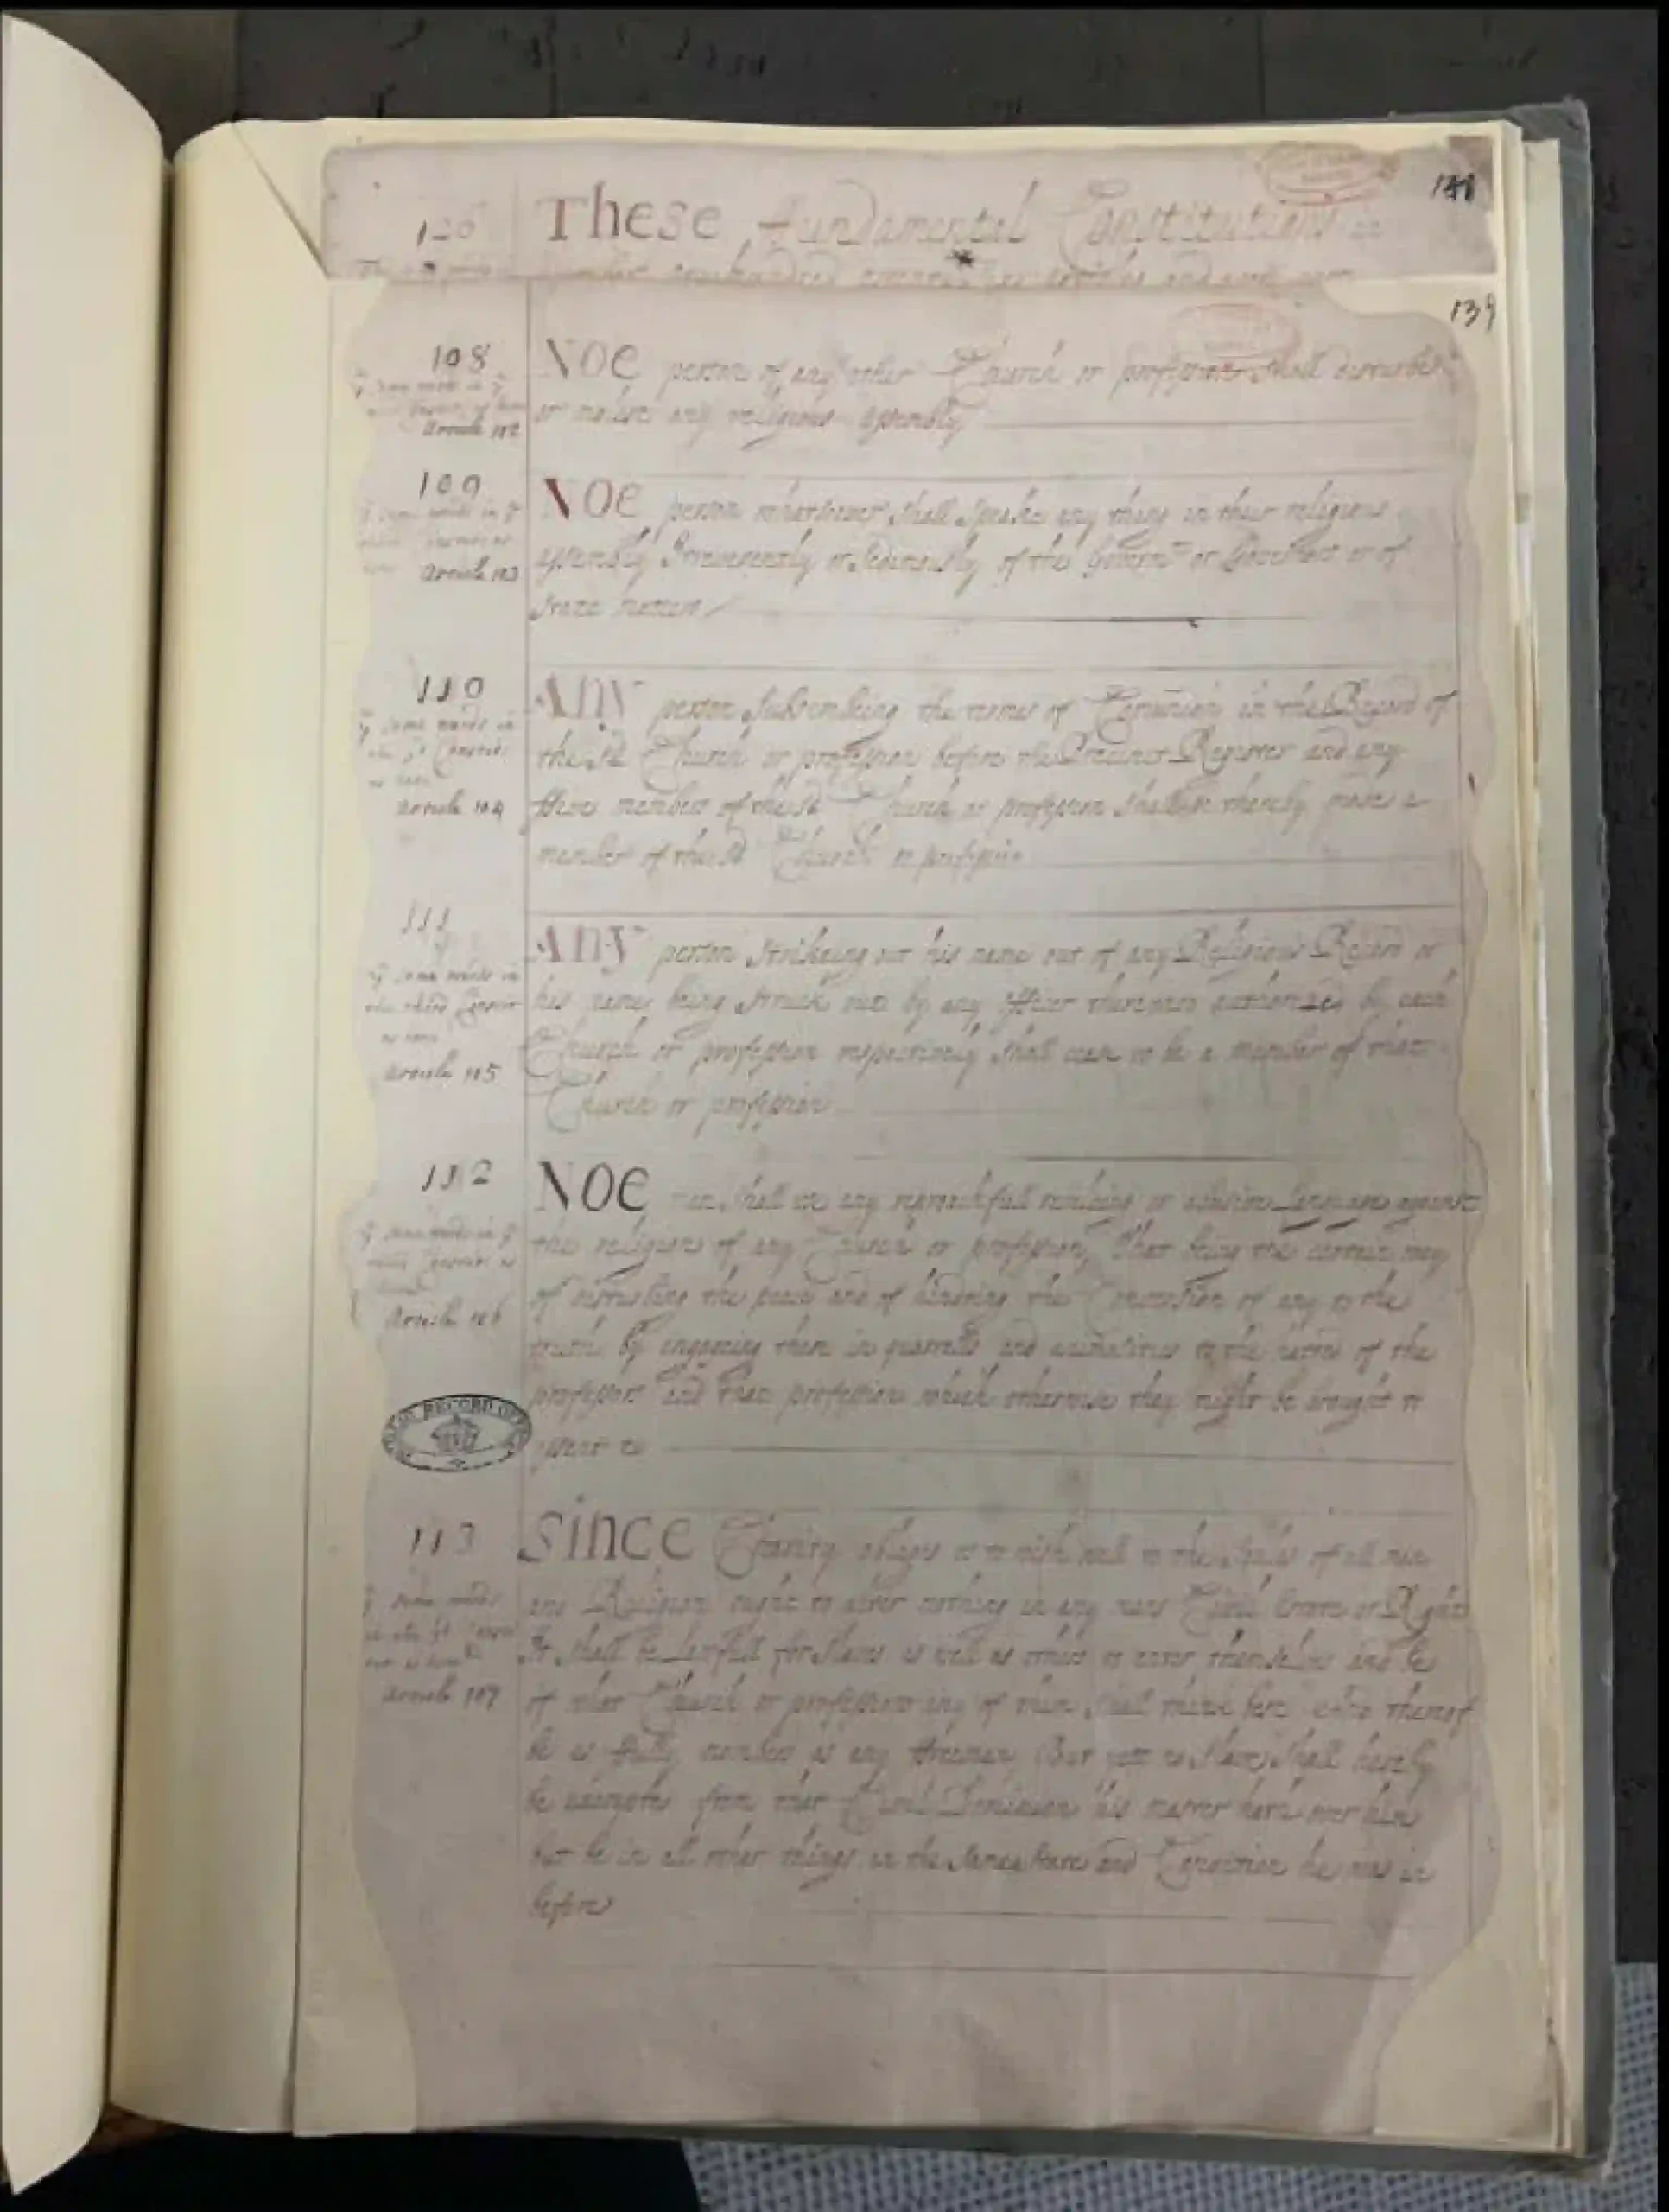 141
120 These fundamental Constitutions
139
108 NOE person of any other Church or profession shall disturbe
or molest any religious assembly
Article 102
109 NOE person whatsoever shall speake any thing in their religious
assembly Irreverently or Seditiously of the Governmt or Governors or of
State matters
Article 103
110 ANY person subscribing the termes of Comunion in the Record of
the sd Church or profession before the Precinct Register and any
five members of the sd Church or profession shall be thereby made a
member of the sd Church or profession
ye same words in
Article 104
111 ANY person strikeing out his name out of any Religious Record or
his name being struck out by any officer thereunto authorized by each
Church or profession respectively shall cease to be a member of that
Church or profession
ye same words in
Article 105
112 NOE man shall use any reproachfull revileing or abusive Language against
the religion of any Church or profession, That being the certain way
of disturbing the peace and of hindring the Conversion of any to the
truth by engageing them in quarrells and animosities to the hatred of the
professors and that profession which otherwise they might be brought to
assent to
Article 106
PUBLIC RECORD OFFICE
113 SINCE Charity obliges us to wish well to the Soules of all men
and Religion ought to alter nothing in any mans Civil Estate or Right
It shall be Lawfull for Slaves as well as others to enter themselves and be
of what Church or profession any of them shall think best and thereof
be as fully members as any freeman, But yett no Slave shall hereby
be exempted from that Civil Dominion his master hath over him
but be in all other things in the same state and Condition he was in
before
ye same words
Article 107